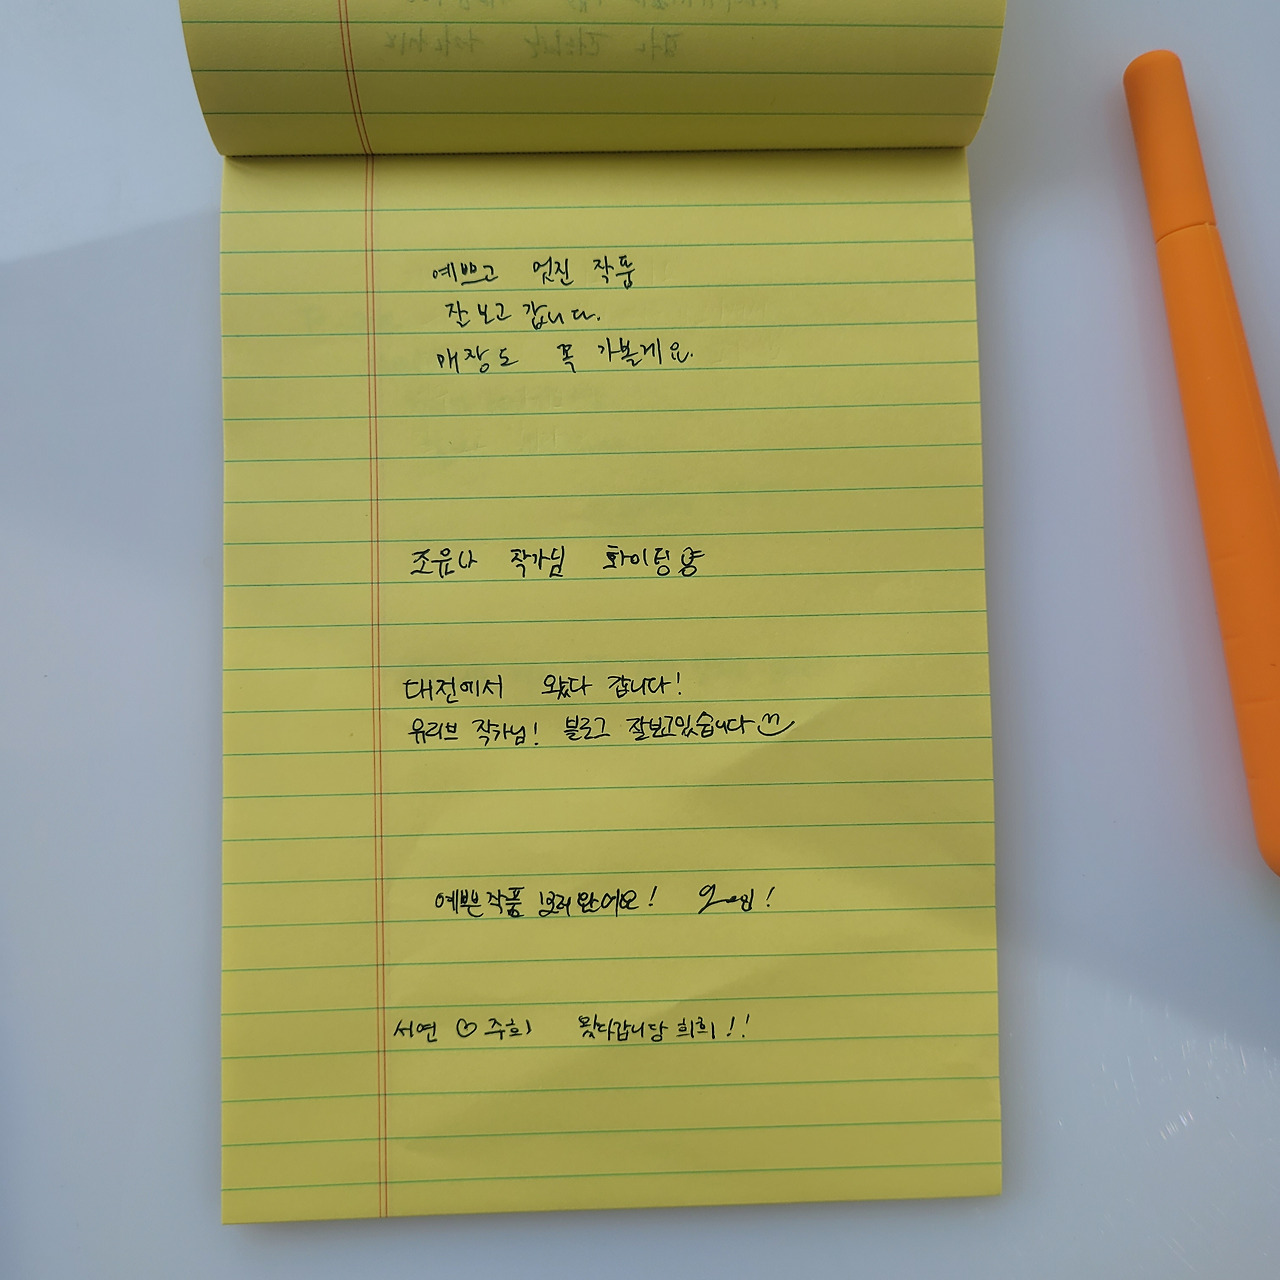 예쁘고 멋진 작품
잘보고 갑니다.
매장도 꼭 가볼게요.
조유나 작가님 화이팅
대전에서 왔다 갑니다!
유리브 작가님! 블로그 잘보고있습니다
예쁜작품 보러왔어요!
서연 ♡ 주희 왔다갑니당 희희!!